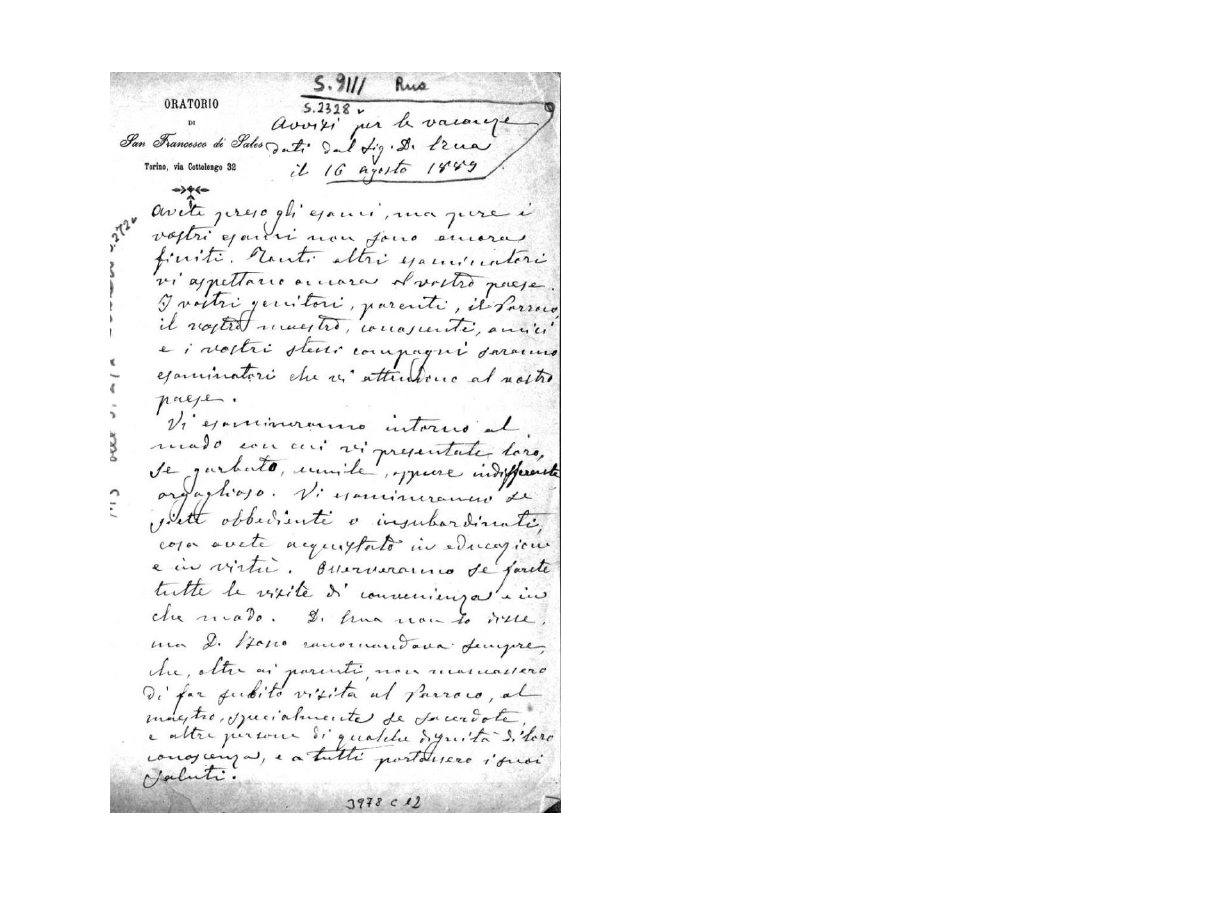 S.9111 Rua
ORATORIO
DI
San Francesco di Sales
Torino, via Cottolengo 32
S.2328
Avvisi per le vacanze
dati dal Sig. D. Rua
il 16 agosto 1889
Avete preso gli esami, ma pure i
vostri esami non sono ancora
finiti. Tanti altri esaminatori
vi aspettano ancora al vostro paese.
I vostri genitori, parenti, il Parroco,
il vostro maestro, conoscenti, amici
e i vostri stessi compagni saranno
esaminatori che vi attendono al vostro
paese.
Vi esamineranno intorno al
modo con cui vi presentate loro,
se garbato, umile, oppure indifferente
orgoglioso. Vi esamineranno se
siete obbedienti o insubordinati,
cosa avete acquistato in educazione
e in virtù. Osserveranno se farete
tutte le visite di convenienza e in
che modo. D. Rua non lo disse,
ma D. Bosco raccomandava sempre,
che, oltre ai parenti, non mancassero
di far subito visita al Parroco, al
maestro, specialmente se sacerdote,
e altre persone di qualche dignità di loro
conoscenza, e a tutti portassero i suoi
saluti.
3978 C 12